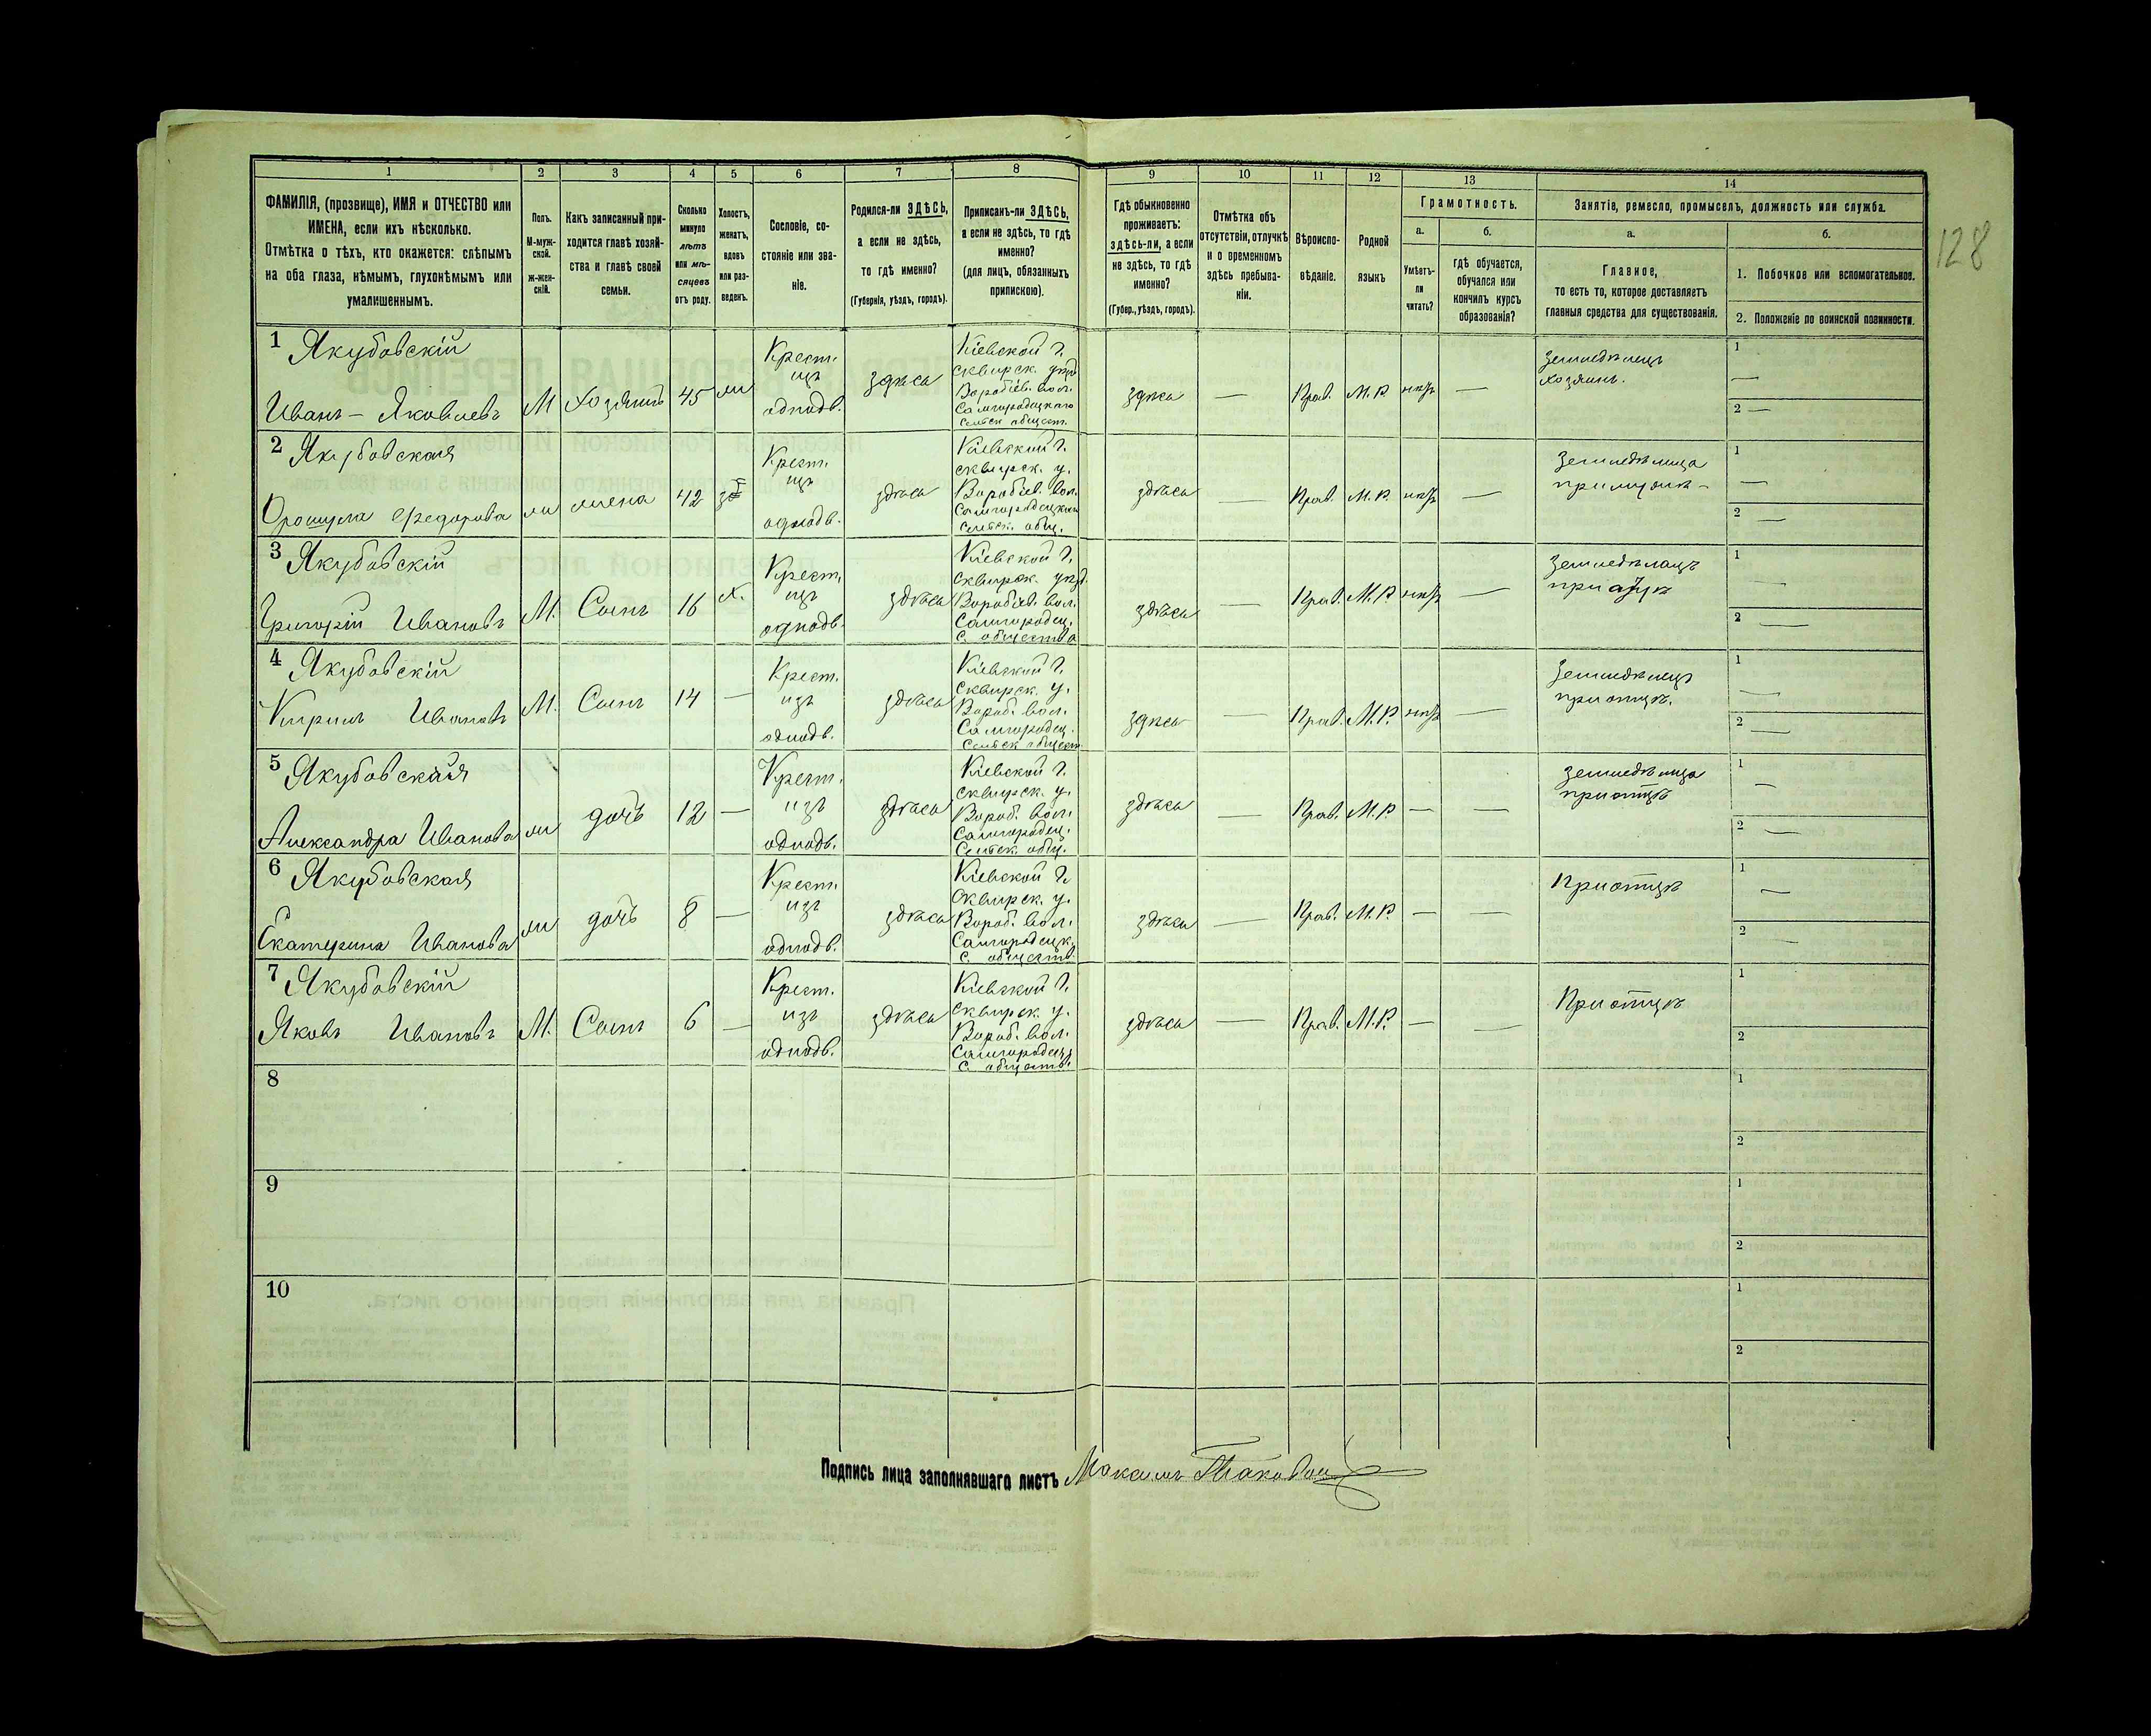 1 2 3 4 5 6 7 8 9 10 11 12 13 14
ФАМИЛІЯ, (прозвище), ИМЯ и ОТЧЕСТВО или
ИМЕНА, если ихъ нѣсколько.
Отмѣтка о тѣхъ, кто окажется: слѣпымъ
на оба глаза, нѣмымъ, глухонѣмымъ или
умалишеннымъ.
Полъ.
М-муж-
ской.
ж-жен-
скій.
Какъ записанный при-
ходится главѣ хозяй-
ства и главѣ своей
семьи.
Сколько
минуло
лѣтъ
или мѣ-
сяцевъ
отъ роду.
Холостъ,
женатъ,
вдовъ
или раз-
веденъ.
Сословіе, со-
стояніе или зва-
ніе.
Родился-ли ЗДѢСЬ,
а если не здѣсь,
то гдѣ именно?
(Губернія, уѣздъ, городъ).
Приписанъ-ли ЗДѢСЬ,
а если не здѣсь, то гдѣ
именно?
(для лицъ, обязанныхъ
припискою).
Гдѣ обыкновенно
проживаетъ:
здѣсь-ли, а если
не здѣсь, то гдѣ
именно?
(Губер., уѣздъ, городъ).
Отмѣтка объ
отсутствіи, отлучкѣ
и о временномъ
здѣсь пребыва-
ніи.
Вѣроиспо-
вѣданіе.
Родной
языкъ
Грамотность.
а.
Умѣетъ-
ли
читать?
б.
гдѣ обучается,
обучался или
кончилъ курсъ
образованія?
Занятіе, ремесло, промыселъ, должность или служба.
а.
Главное,
то есть то, которое доставляетъ
главныя средства для существованія.
б.
1. Побочное или вспомогательное.
2. Положеніе по воинской повинности.
128
1 Якубовскій
Иванъ – Яковлевъ
М
Хозяинъ
45
Крест.
изъ
однодв.
здѣсь
Кіевской г.
Сквирск. уѣзд
Воробіев. вол.
Самгородецкаго
Сельск общест.
здѣсь
—
Прав.
М. Р.
—
Земледѣлецъ
хозяинъ.
1 —
2 —
2 Якубовская
Федорова
жена
42
Крест.
изъ
однодв.
здѣсь
Кіевской г.
сквирск. у.
Воробіев. вол.
Сельск. общ.
здѣсь
—
Прав.
М. Р.
—
Земледѣлица
при мужѣ –
1 —
2 —
3 Якубовскій
Григорій Ивановъ
М.
Сынъ
16
х.
Крест.
изъ
однодв.
здѣсь
Кіевской г.
Сквирск. уѣзд.
Воробіев. вол.
Самгородец.
с. общества
здѣсь
—
Прав.
М. Р.
—
Земледѣлецъ
1 —
2 —
4 Якубовскій
Кирилъ Ивановъ
М.
Сынъ
14
—
Крест.
изъ
однодв.
здѣсь
Кіевской г.
Сквирск. у.
Вороб. вол.
Самгородец.
Сельск общест
здѣсь
—
Прав.
М. Р.
—
Земледѣлецъ
при отцѣ.
1 —
2 —
5 Якубовская
Александра Иванова
дочь
12
—
Крест.
изъ
однодв.
здѣсь
Кіевской г.
Сквирск. у.
Вороб. вол.
Самгородец.
Сельск. общ.
здѣсь
—
Прав.
М. Р
—
—
Земледѣлица
при отцѣ
1 —
2 —
6 Якубовская
Екатерина Иванова
дочь
8
—
Крест.
изъ
однодв.
здѣсь
Кіевской г.
Сквирск. у.
Вороб. вол.
Самгородецк.
с. обществ.
здѣсь
—
Прав.
М. Р.
—
—
При отцѣ
1 —
2 —
7 Якубовскій
Яковъ Ивановъ
М.
Сынъ
6
—
Крест.
изъ
однодв.
здѣсь
Кіевской г.
Сквирск. у.
Вороб. вол.
Самгородец.
с. обществ.
здѣсь
—
Прав.
М. Р.
—
—
При отцѣ
1
2
8
1
2
9
1
2
10
1
2
Подпись лица заполнявшаго листъ Максимъ